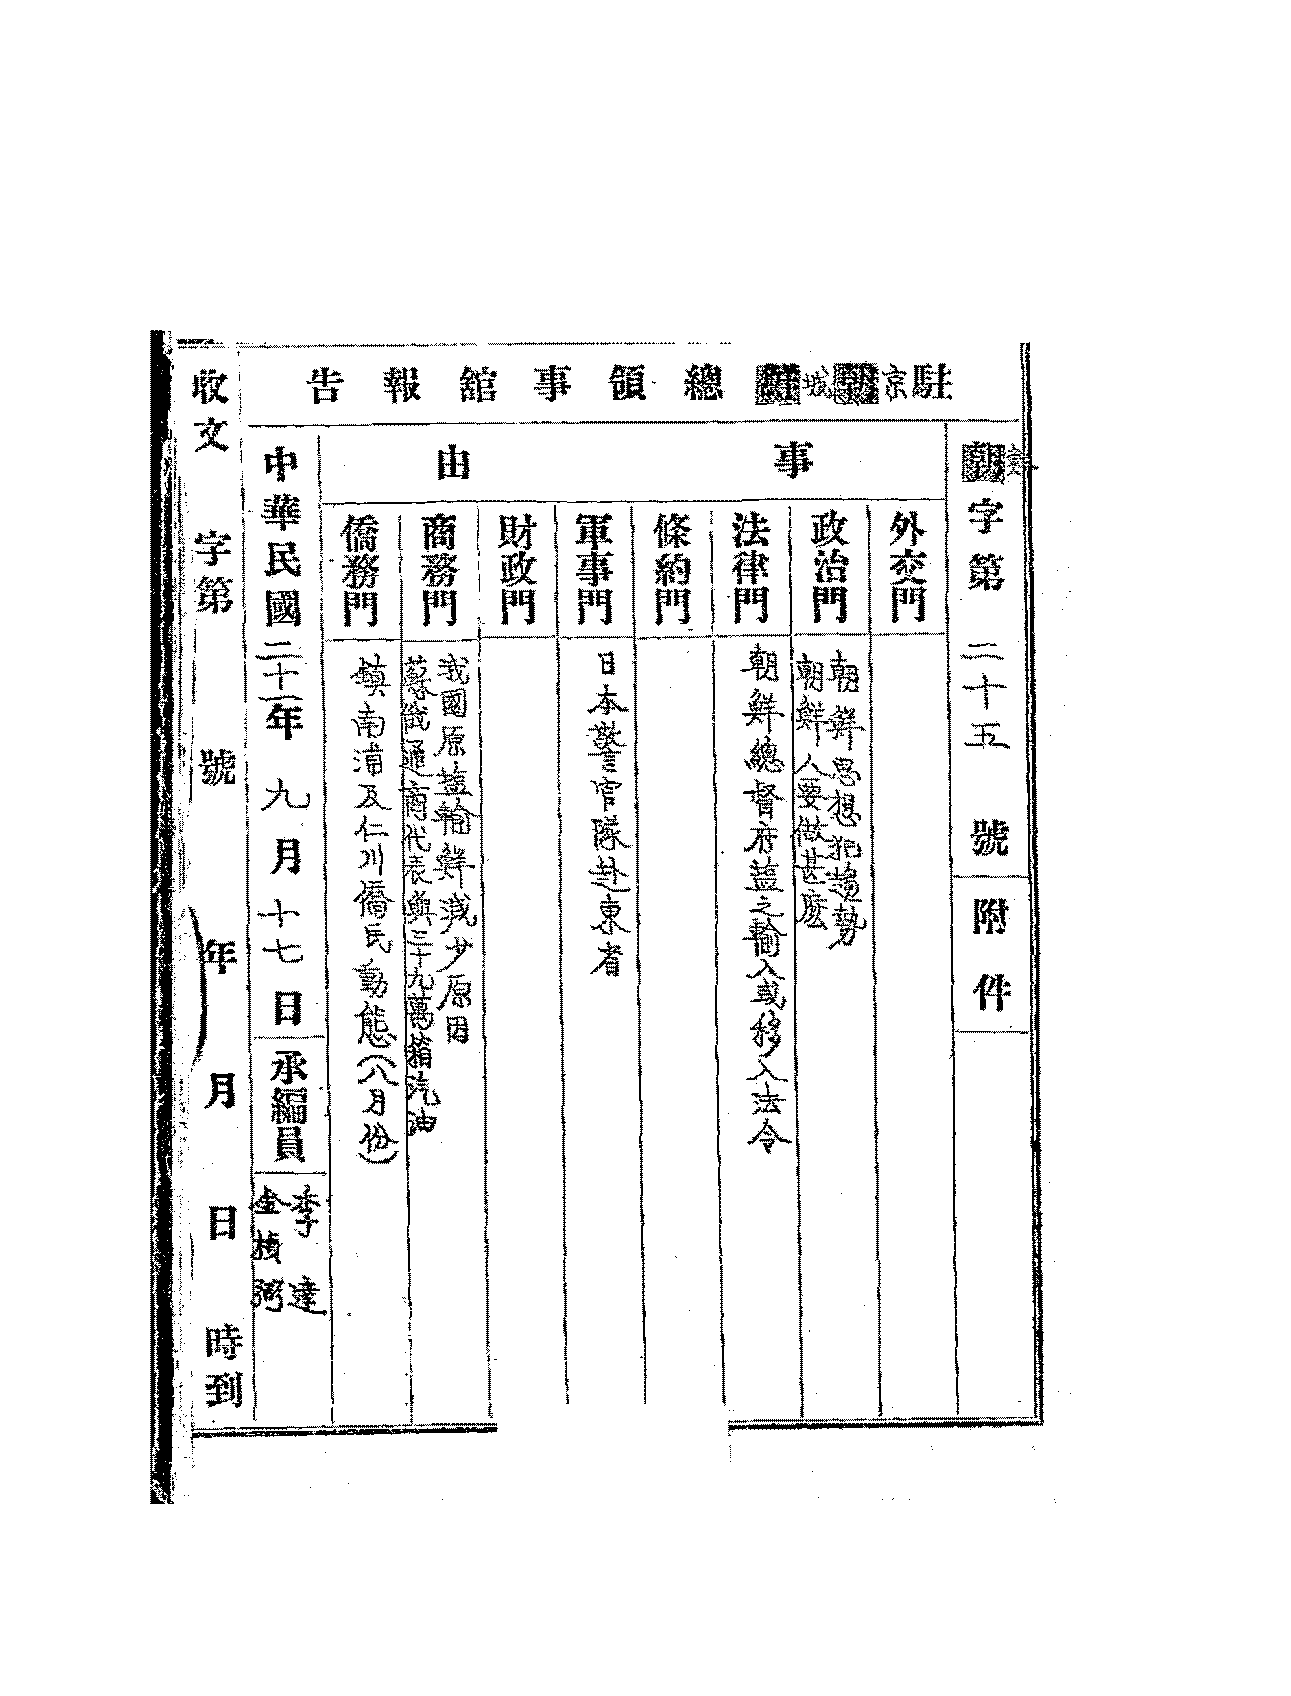 駐京城總領事館報告
字第二十五號
附件
事由
外交門
政治門
朝鮮思想犯趨勢
朝鮮人要做甚麽
法律門
朝鮮總督府盐之輸入或移入法令
條約門
軍事門
日本警官隊赴東省
財政門
商務門
我國原盐輸鮮減少原因
蘇俄通商代表與三十九萬箱汽油
僑務門
鎮南浦及仁川僑民動態(八月份)
中華民國二十一年九月十七日
承編員
李達
金楨弼
收文 字第 號 年 月 日 時到